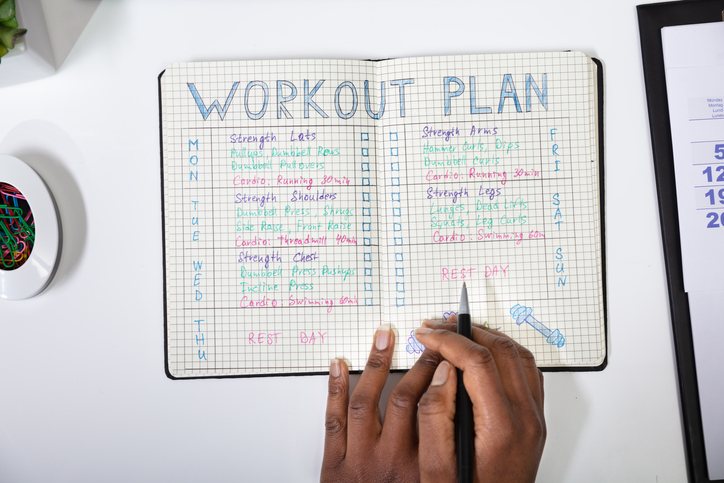 WORKOUT PLAN
MON
Strength Lats
Pullups, Dumbbell Rows
Dumbbell Pullovers
Cardio: Running 30min
TUE
Strength Shoulders
Dumbbell Press, Shrugs
Side Raise, Front Raise
Cardio: Threadmill 40min
WED
Strength Chest
Dumbbell Press Pushups
Incline Press
Cardio Swimming 60min
THU
REST DAY
FRI
Strength Arms
Hammer Curls, Dips
Dumbell Curls
Cardio: Running 30min
SAT
Strength Legs
Lunges, Dead Lifts
Squats, Leg Curls
Cardio: Swimming 60m
SUN
REST DAY
5
12
19